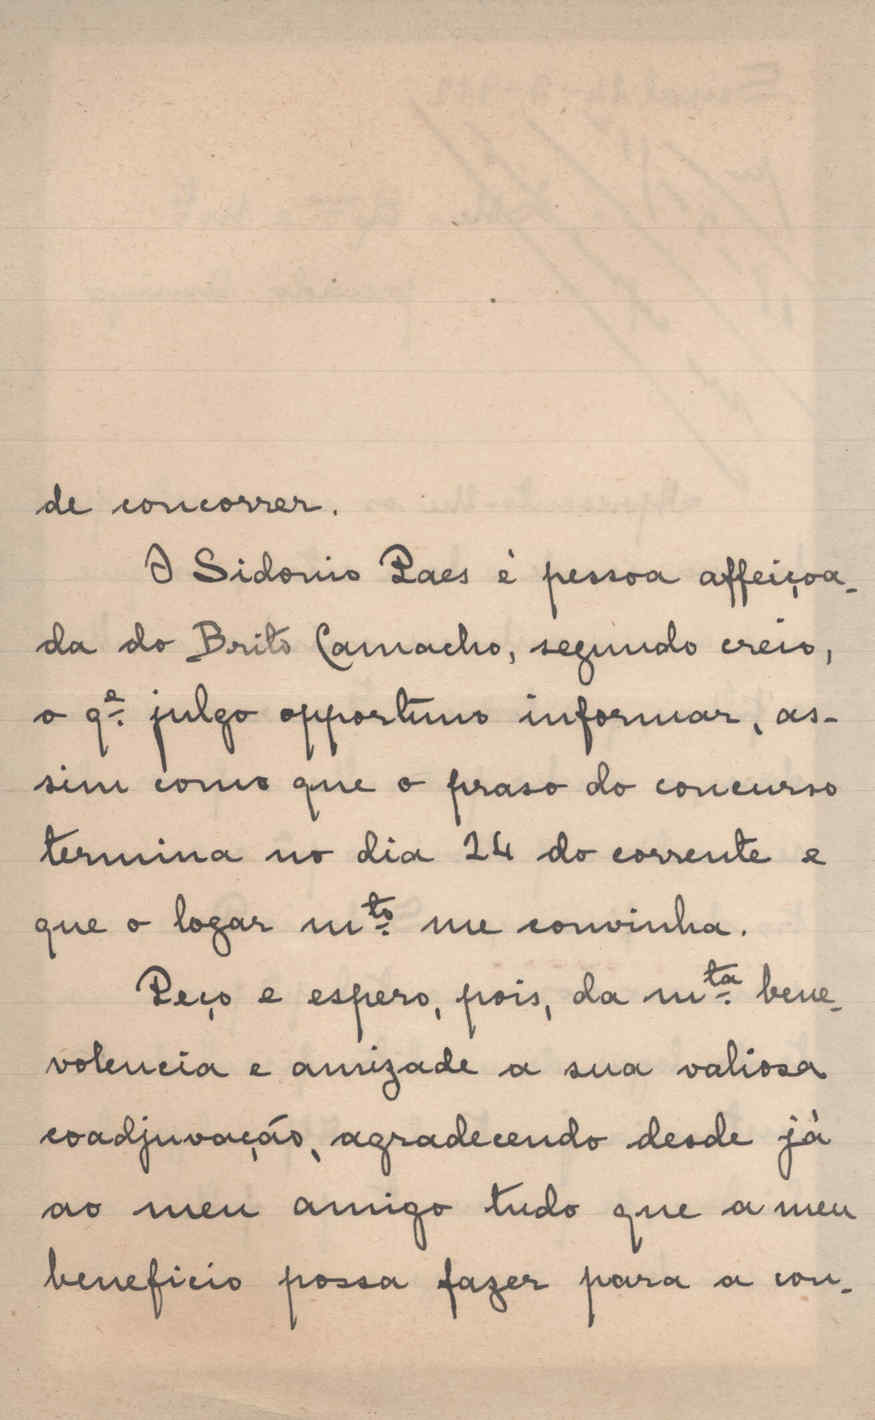 de concorrer.
O Sidonio Paes è pessoa affeiçoa-
da do Brito Camacho, segundo creio,
o qᵉ. julgo opportuno informar, as-
sim como que o praso do concurso
termina no dia 24 do corrente e
que o logar mᵗᵒ. me convinha.
Peço e espero, pois, da mᵗᵃ. bene-
volencia e amizade a sua valiosa
coadjuvação, agradecendo desde já
ao meu amigo tudo que a meu
beneficio possa fazer para a con-